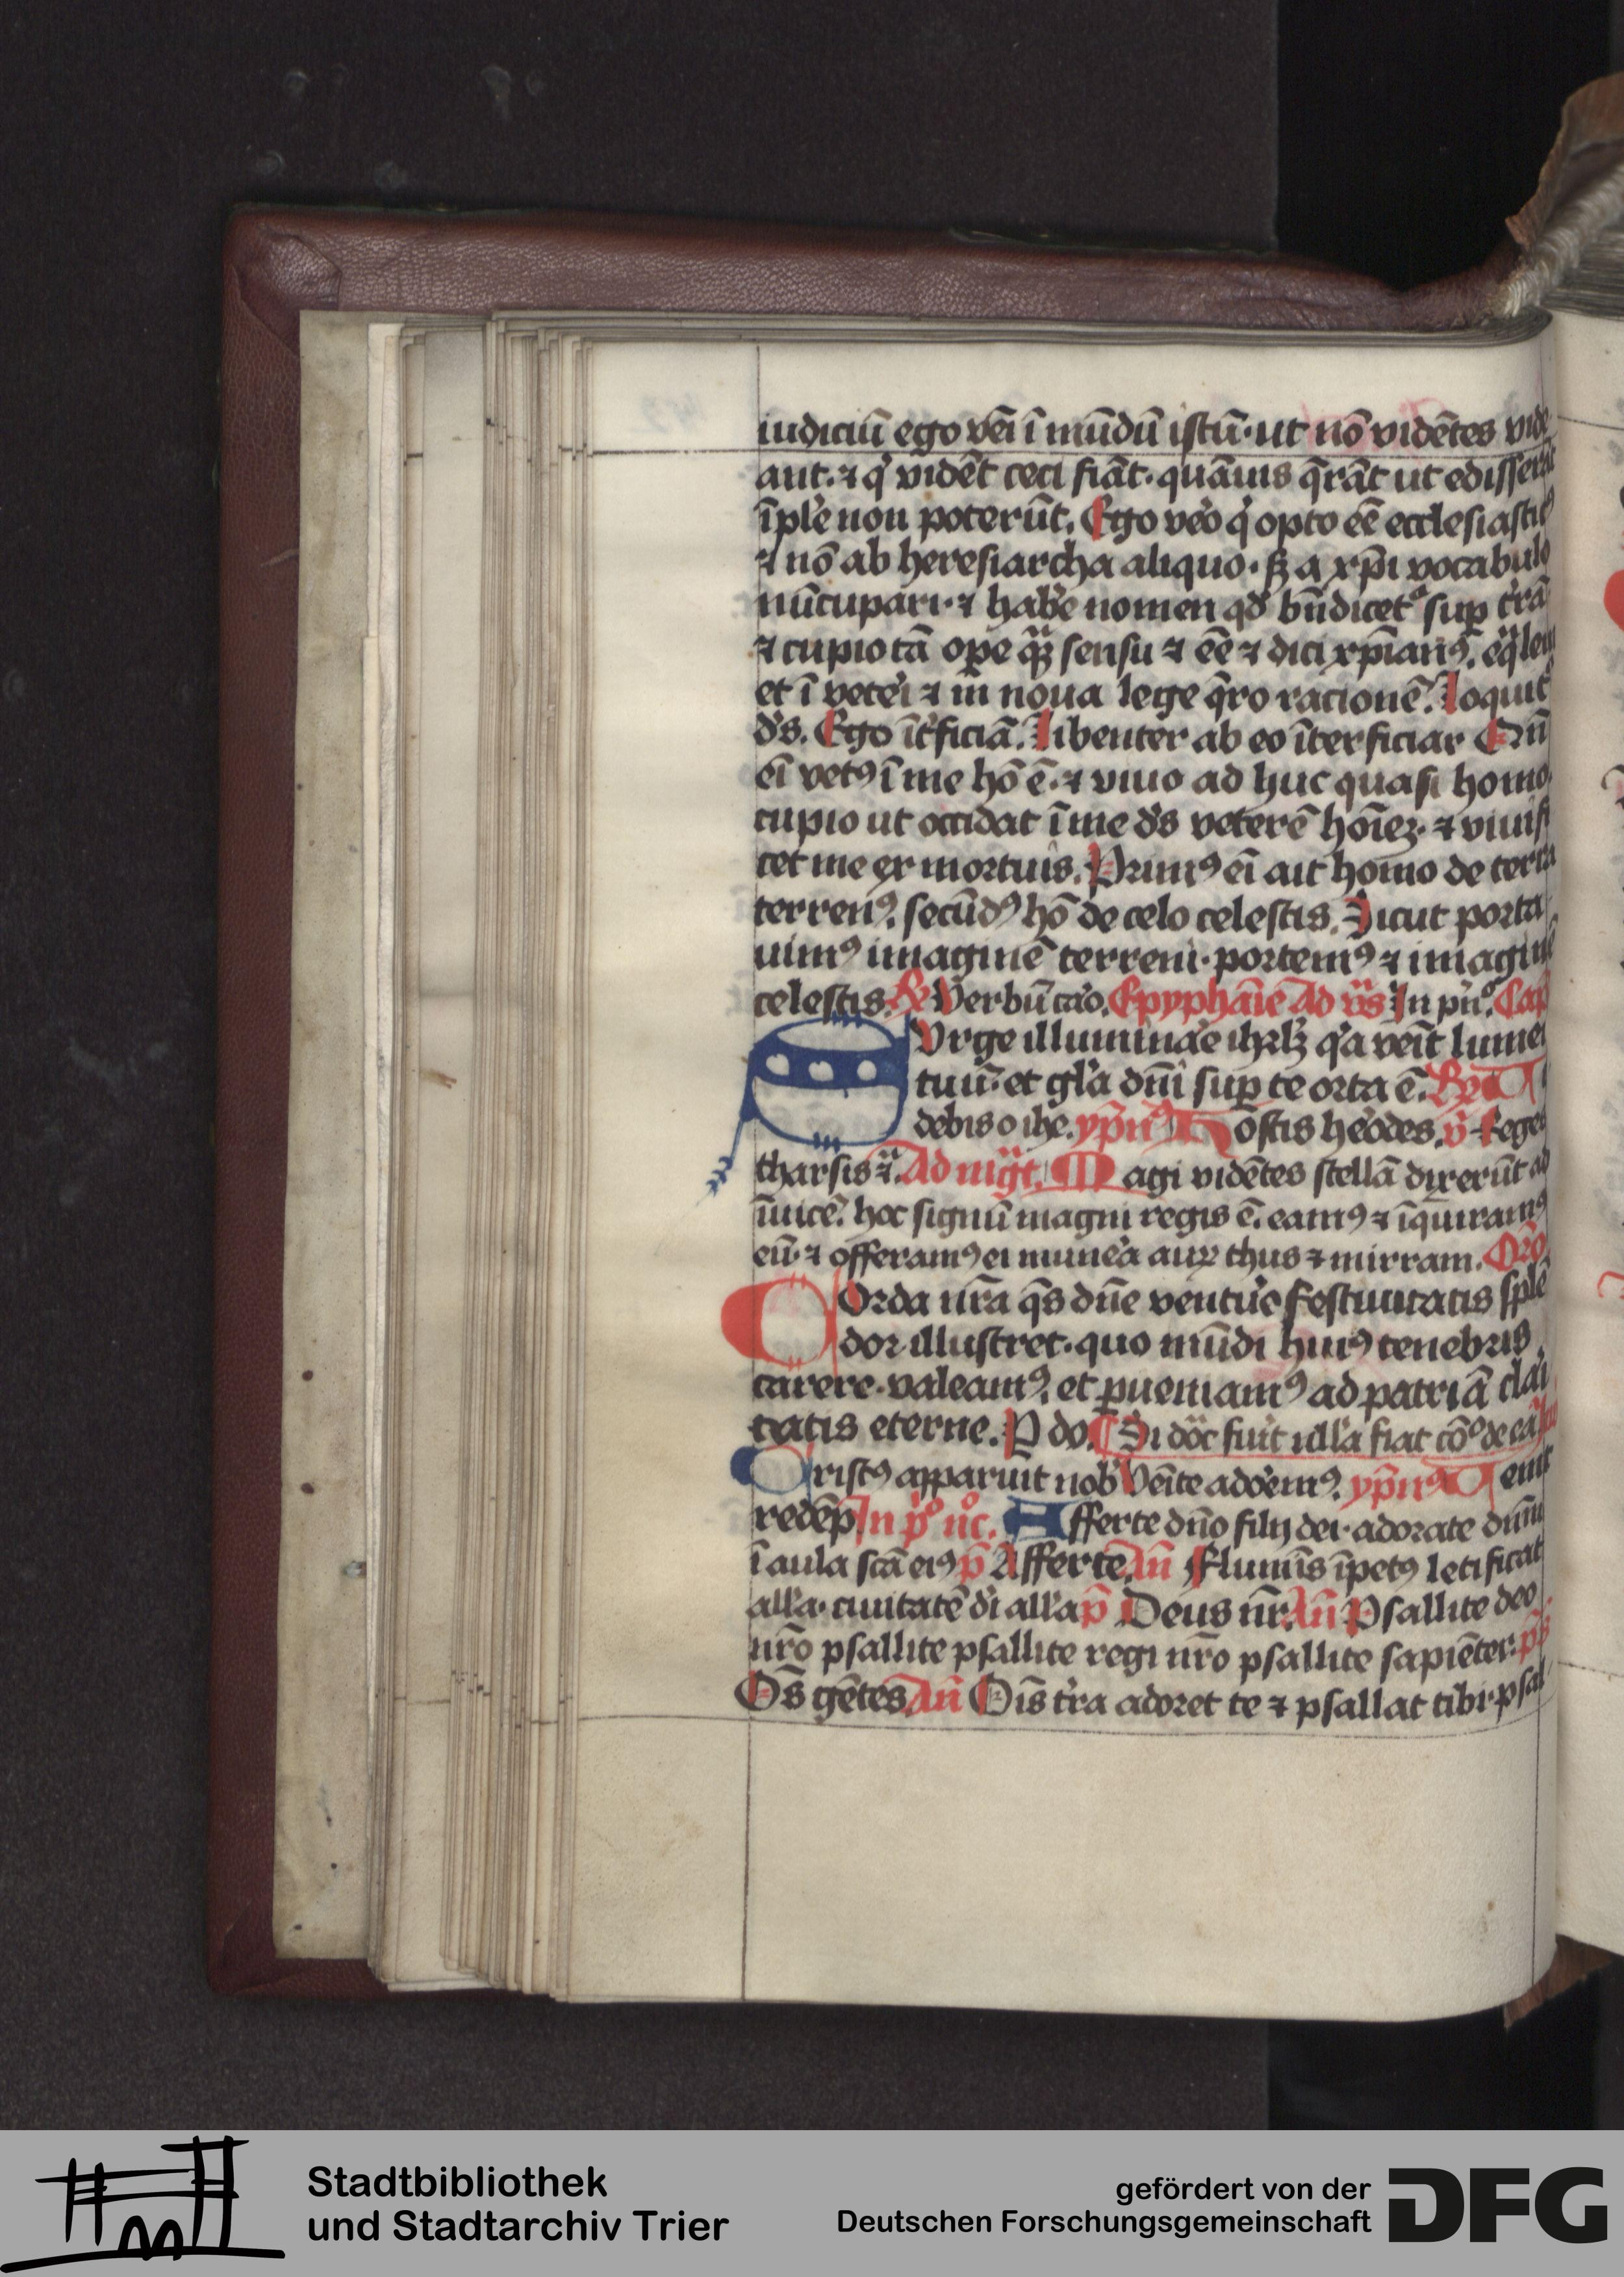 iudiciū ego vēi ī mūdū istū· ut nō vidētes vide
ant· ⁊ q̇ vidēt ceci fiāt· quāuis q̄rāt ut edisserāt
īple̓ non poterūt. Ego ve̓o q̇ opto ēē ecclesiasticꝰ
⁊ nō ab heresiarcha aliquo· sꝫ a xp̄i vocabulo
nūcupari· ⁊ habe̓ nomen qd̓ bn̄dicet᷑ suꝑ t̓rā
⁊ cupio tā ope qͣꝫ sensu ⁊ ēē ⁊ dici xp̄ianꝰ.
et ī vete̓i ⁊ in̄ noua lege q̄ro racionē. Loquit᷑
d̓s. Ego īt̓ficiā. Libenter ab eo īterficiar Qn̄
ei̅ vetꝰ ī me hō ē· ⁊ viuo ad huc quasi homo·
cupio ut occidat ī me d̓s veterē hoīeꝫ· ⁊ viuifi
cet me ex mortuis. Primꝰ ei̅ ait homo de terra
terrenꝰ. secūdꝰ hō de celo celestis. Sicut porta
uimꝰ imaginē terreni· portemꝰ ⁊ imaginē
celestis. ℟ Verbū ca̓o. Epyphanie Ad vs̄ In pn̓º. Cap
Surge illumina̓e ihrl̓ꝫ q̓a veīt lumen
tuū· et gl̓a dn̄i suꝑ te orta ē. ℟ T
debis o ihe. ypn̄ꝰ Hostis he̓odes. v̄ Reges
tharsis ⁊. Ad mgͣt. Magi vidētes stellā dixerūt ad
īuicē. hoc signū magni regis ē. eamꝰ ⁊ īquiramꝰ
eū· ⁊ offeramꝰ ei mune̓a auꝝ thus ⁊ mirram. Oro
Corda nr̄a qs̄ dn̄e ventu̓e festiuitatis splē
dor illustret· quo mūdi huiꝰ tenebris
carere· valeamꝰ. et ꝑueniamꝰ ad patriā clai̓
tatis eterne. P do. Si do̓c fui̓t ill̓a fiat cōº de ea
Cristꝰ apparuit nob̓ Veīte ado̓emꝰ. ypn̄ꝰ Veni
redēp In pº nc̊. Afferte dn̄o filij dei· adorate dn̄m
ī aula scā eiꝰ p̄ Afferte. an̄ Flumīs īpetꝰ letificat
all̓a· ciuitatē d̓i all̓a p̄ Deus nr̄. an̄ Psallite deo
nr̄o psallite psallite regi nr̄o psallite sapiēter. ps̄
Os̄ gētes an̄ Oīs t̓ra adoret te ⁊ psallat tibi· psal
Stadtbibliothek
und Stadtarchiv Trier
gefördert von der
Deutschen Forschungsgemeinschaft
DFG